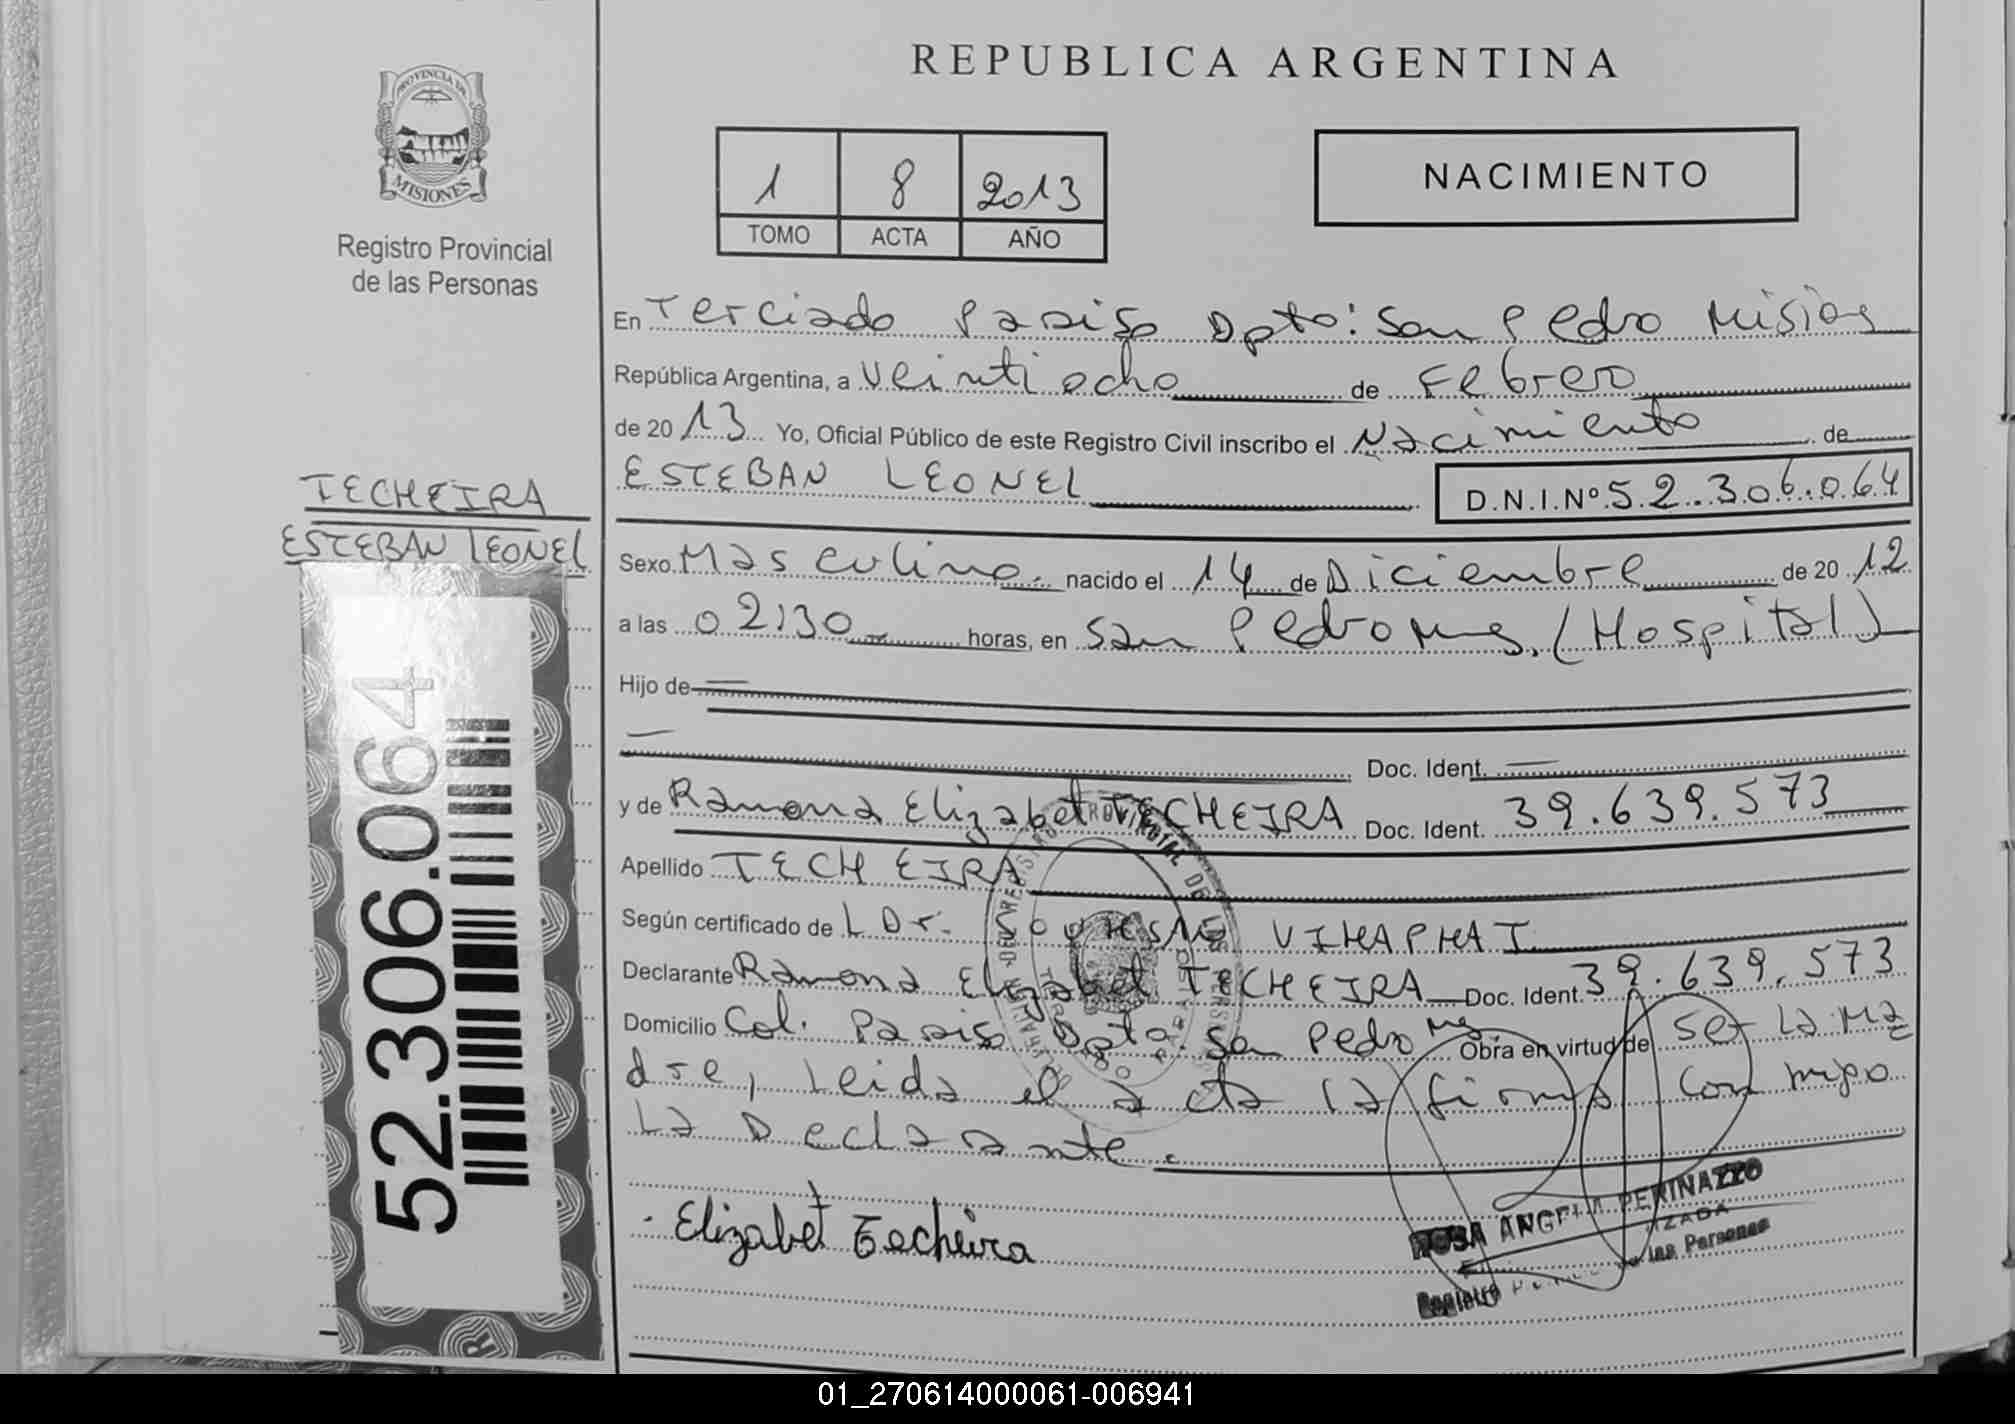 REPUBLICA ARGENTINA
PROVINCIA DE
MISIONES
Registro Provincial
de las Personas
1 8 2013
TOMO ACTA AÑO
NACIMIENTO
En Terciado Paraiso Dpto: San Pedro Misiones
República Argentina, a veintiocho de Febrero
de 2013 Yo, Oficial Público de este Registro Civil inscribo el Nacimiento de
ESTEBAN LEONEL D.N.I.Nº 52.306.064
TECHEIRA
ESTEBAN LEONEL
Sexo Masculino. nacido el 14 de Diciembre de 2012
a las 02:30 horas, en San Pedro Mnes. (Hospital)
Hijo de
Doc. Ident.
y de Ramona Elizabet TECHEIRA Doc. Ident. 39.639.573
Apellido TECHEIRA
Según certificado de L Dr. VIHAPHAI
Declarante Ramona Elizabet TECHEIRA Doc. Ident. 39.639.573
Domicilio Col. Paraiso Dpto. San Pedro Mnes Obra en virtud de ser La Ma
dre, Leida el acta la firma con migo
La Declarante.
52.306.064
Elizabet Techeira
ROSA ANGELA PERINAZZO
Registro de las Personas
01_270614000061-006941